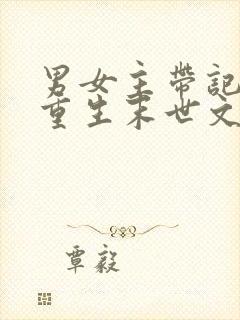 男女主带記
重生末世文
覃毅